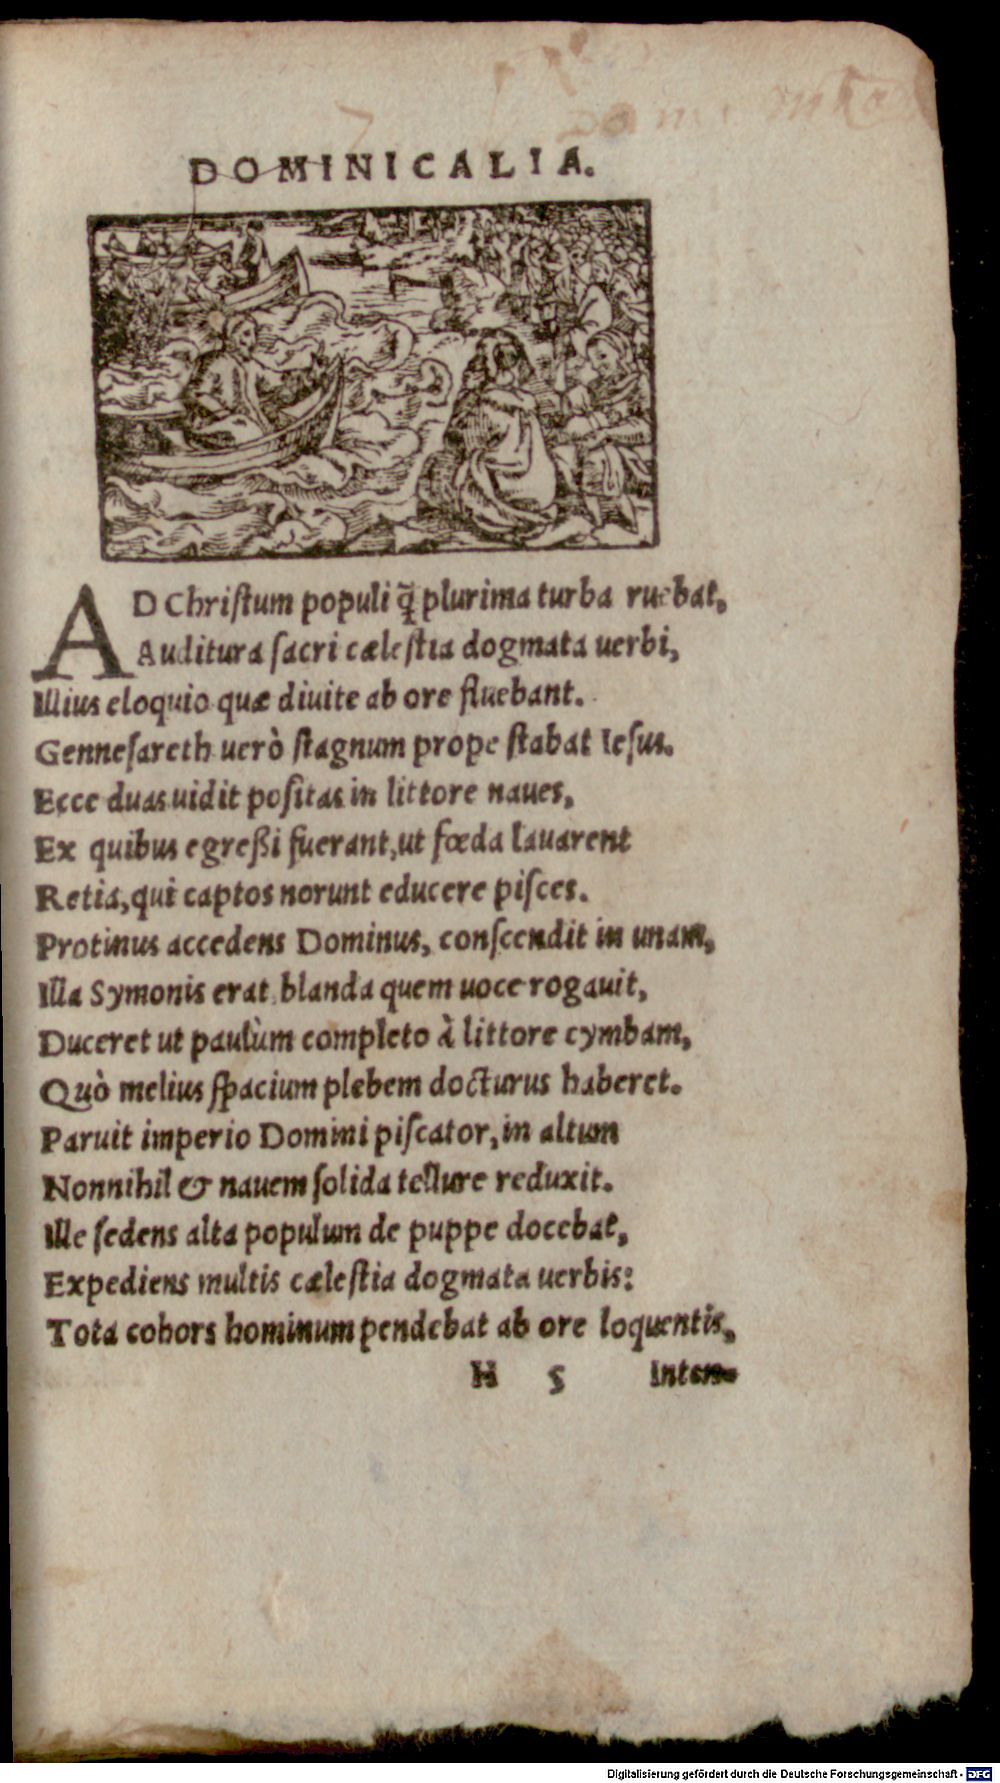 DOMINICALIA.
AD Chriſtum populi q̃ plurima turba ruebat,
Auditura ſacri cæleſtia dogmata uerbi,
Illius eloquio quæ diuite ab ore fluebant.
Genneſareth uerò ſtagnum prope ſtabat Ieſus.
Ecce duas uidit poſitas in littore naues,
Ex quibus egreßi fuerant, ut fœda lauarent
Retia, qui captos norunt educere piſces.
Protinus accedens Dominus, conſcendit in unam,
Illa Symonis erat, blanda quem uoce rogauit,
Duceret ut paulùm completo à littore cymbam,
Quò melius ſpacium plebem docturus haberet.
Paruit imperio Domini piſcator, in altum
Nonnihil & nauem ſolida tellure reduxit.
Ille ſedens alta populum de puppe docebat,
Expediens multis cæleſtia dogmata uerbis:
Tota cohors hominum pendebat ab ore loquentis,
H 5 Inten-
Digitalisierung gefördert durch die Deutsche Forschungsgemeinschaft - DFG